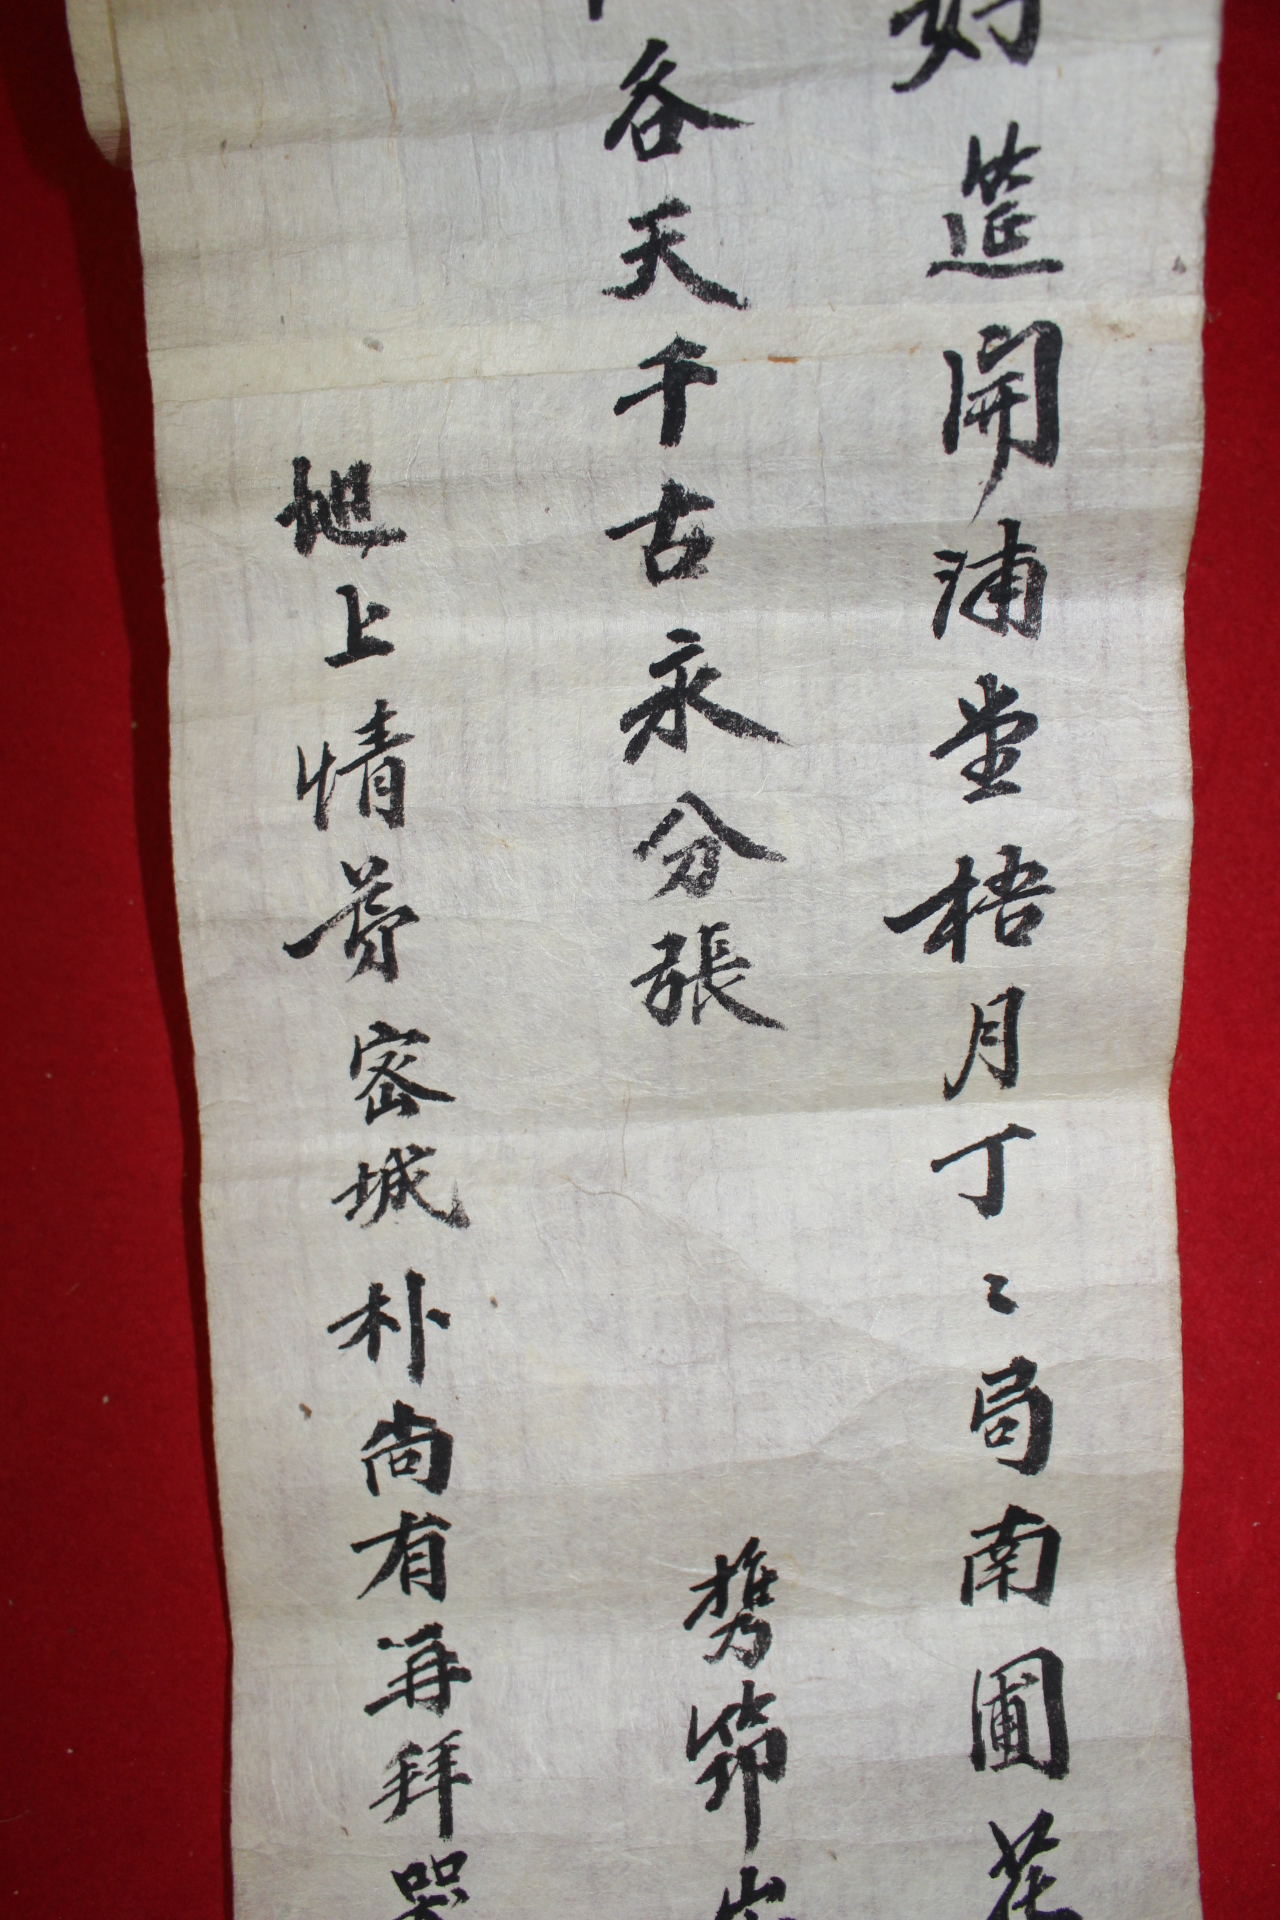 好筵開浦堂梧月丁〻局南圃花
各天千古永分張　携笻
地上情菞密城朴尙有再拜哭